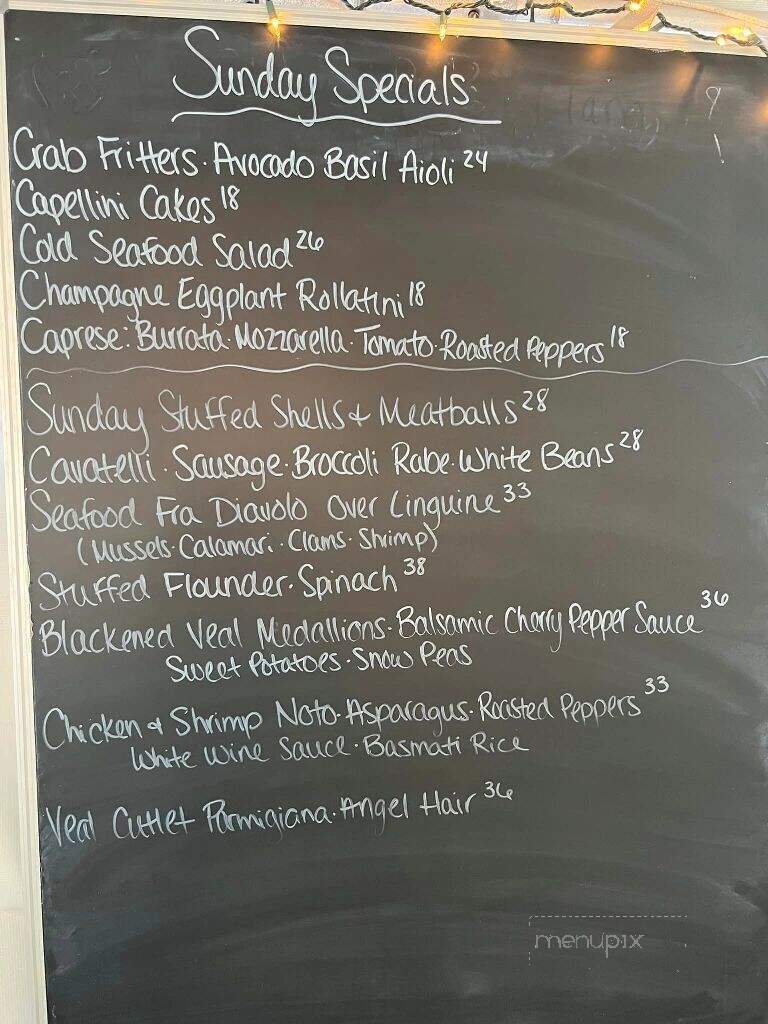 Sunday Specials
Crab Fritters · Avocado Basil Aioli 24
Capellini Cakes 18
Cold Seafood Salad 26
Champagne Eggplant Rollatini 18
Caprese: Burrata · Mozzarella · Tomato · Roasted Peppers 18
Sunday Stuffed Shells & Meatballs 28
Cavatelli · Sausage · Broccoli Rabe · White Beans 28
Seafood Fra Diavolo Over Linguine 33
(Mussels · Calamari · Clams · Shrimp)
Stuffed Flounder · Spinach 38
Blackened Veal Medallions · Balsamic Charry Pepper Sauce 36
Sweet Potatoes · Snow Peas
Chicken & Shrimp Noto · Asparagus · Roasted Peppers 33
White Wine Sauce · Basmati Rice
Veal Cutlet Parmigiana · Angel Hair 36
menupix